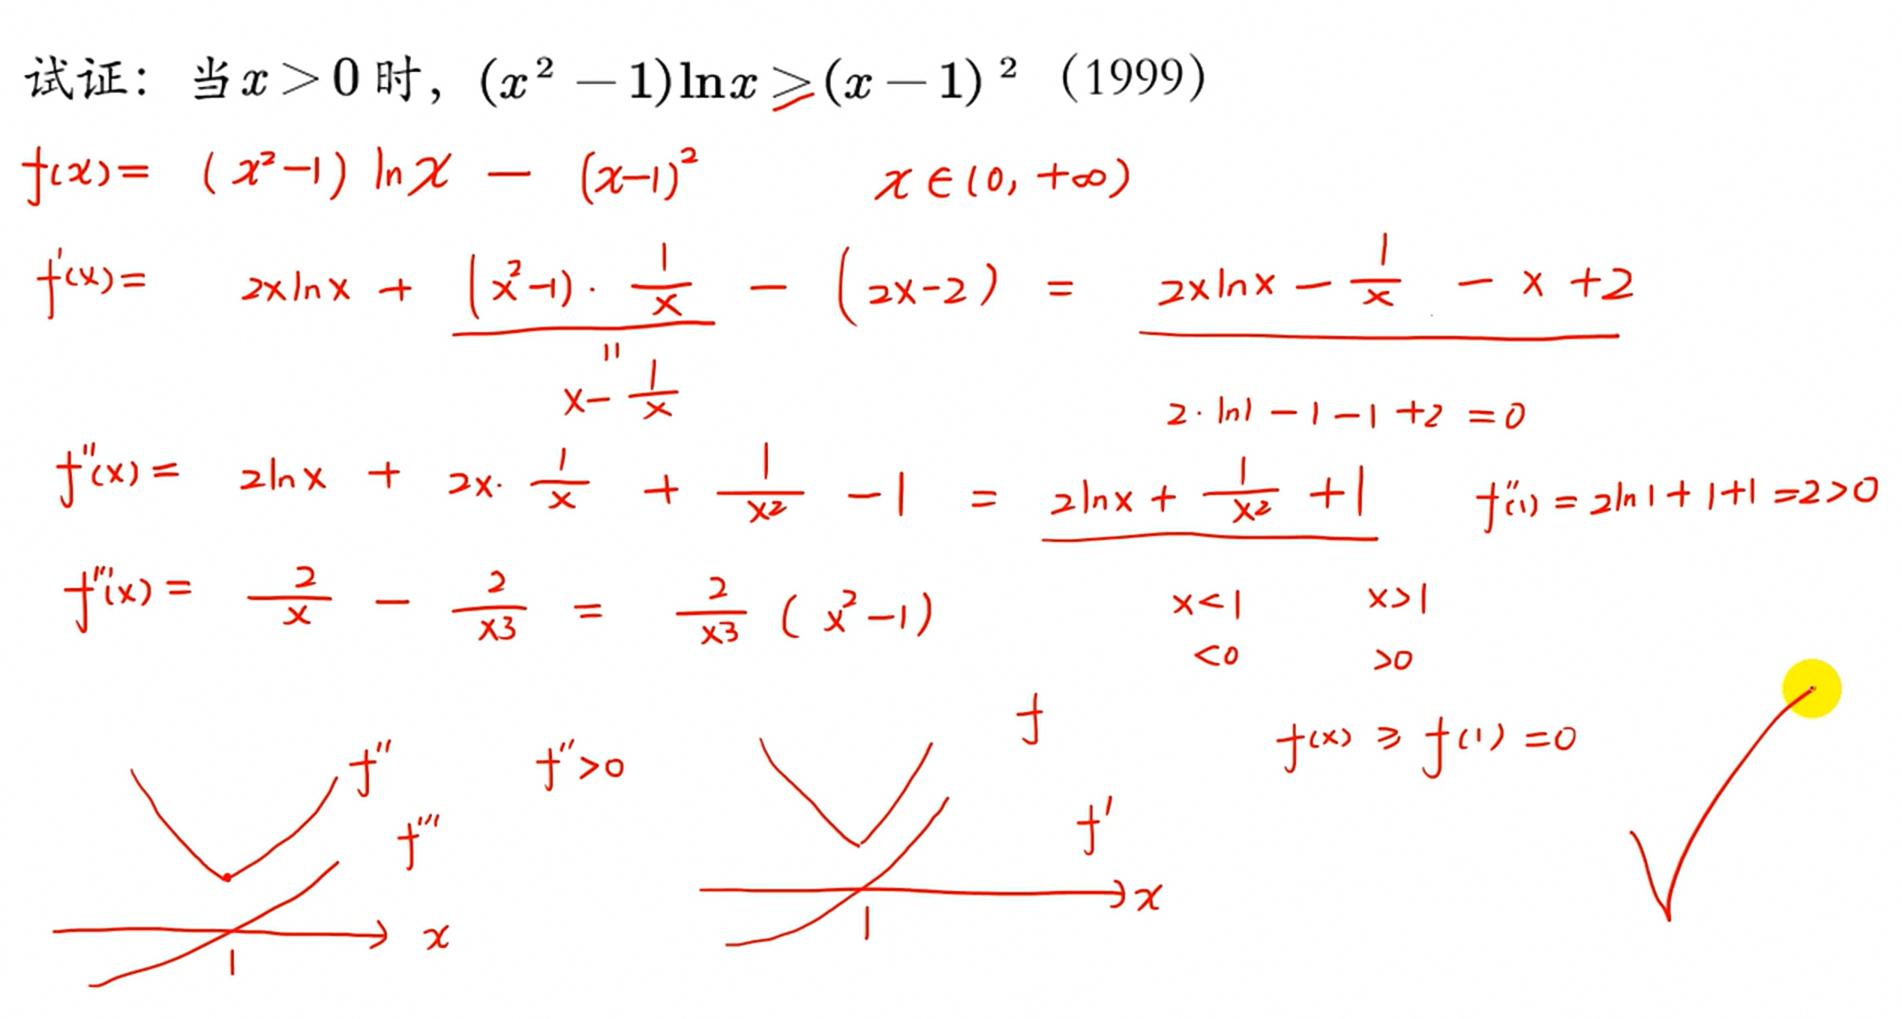 试证：当x>0时，(x²－1)lnx≥(x－1)²（1999）
f(x)= (x²-1) lnx - (x-1)² x∈(0, +∞)
f'(x)= 2xlnx + (x²-1)·1/x - (2x-2) = 2xlnx - 1/x - x +2
" x- 1/x
2·ln1 -1-1+2 =0
f"(x)= 2lnx + 2x·1/x + 1/x² -1 = 2lnx + 1/x² +1 f"(1) = 2ln1+1+1=2>0
f'''(x)= 2/x - 2/x3 = 2/x3 (x²-1) x<1 x>1
<0 >0
f" f">0 f f(x) ≥ f(1) =0
f''' f'
x x
1 1